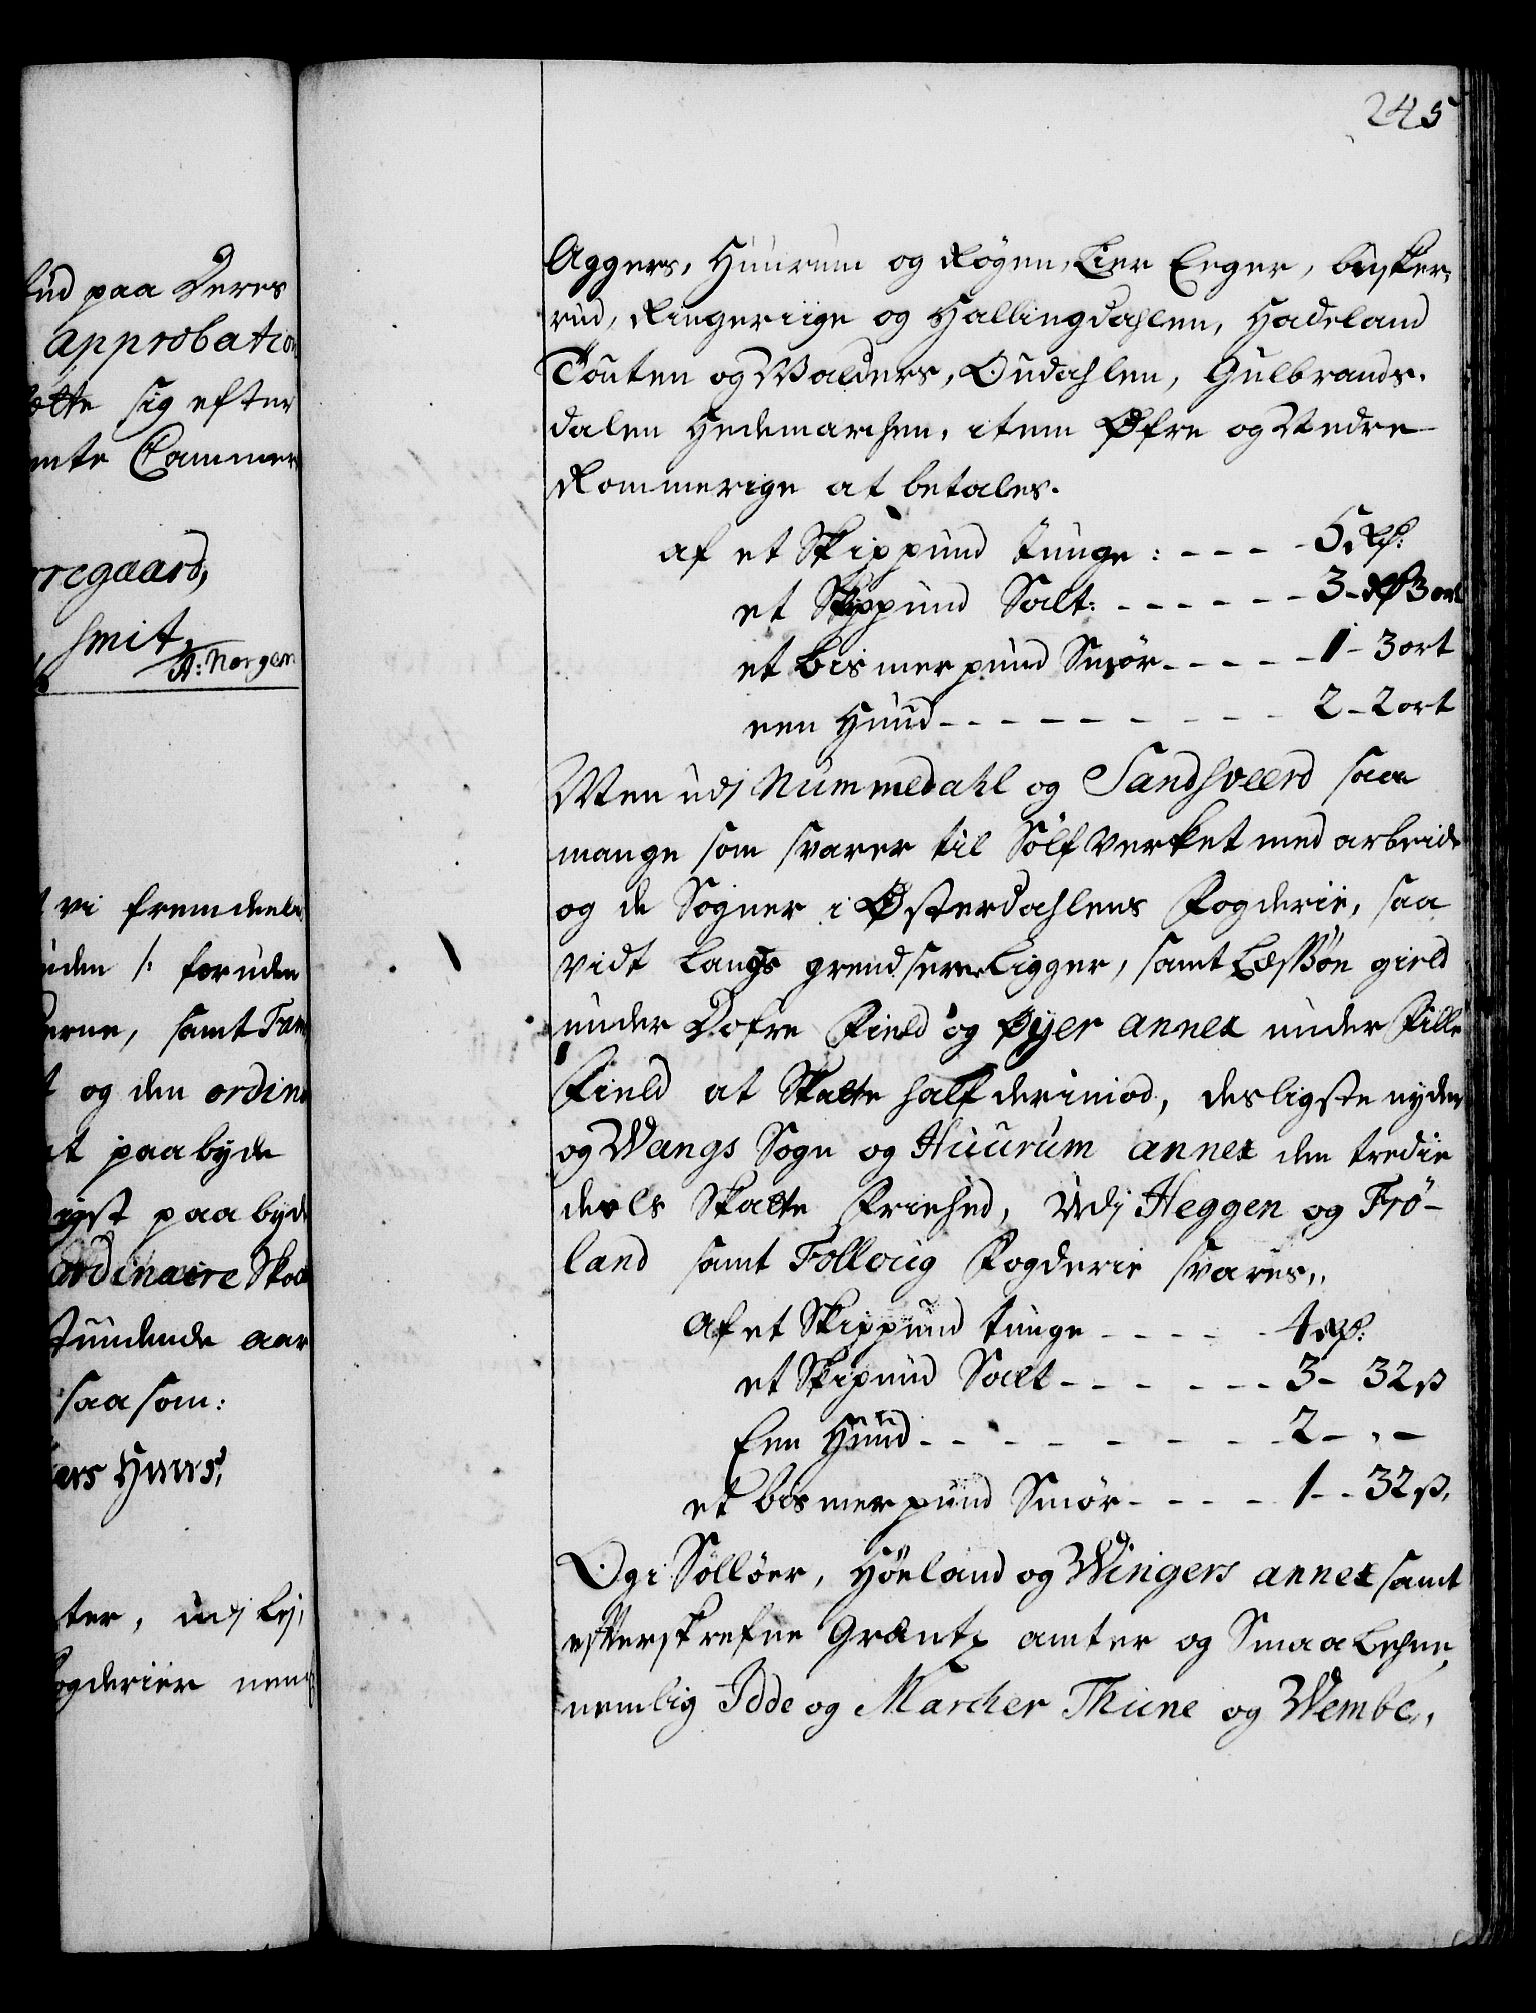 lud paa Deres
approbation
ette sig efter
mte Cammer
rregaard,
Smit,
A: Norgen
t vi fremdeels
uden /: foruden
erne, samt
t og den ordin
at paabyde
igst paabyd
ordinaire Skat
stundende aar
saasom:
ers Huus,
ter, udj Lej,
ogderier neml
245
Aggers, Huurum og Røgen, Lier Eeger, Busker,
rud, Ringeriige og Hallingdahlen, Hadeland
Touten og Walders, Oudahlen, Gulbrands.
dalen Hedemarchen, item Øfre og Nedre
Rommerige at betales.
af et Skippund tunge: - - - - 5 Rd:
et Skippund Salt: - - - - - - 3 - Rd 3 ort
et bismerpund Smør - - - - - 1 - 3 ort
een Huud - - - - - - - - - 2 - 2 ort
Men udj Nummedahl og Sandsveerd saa
mange som svarer til Sølf verket med arbeide
og de Sogner i Østerdahlens Fogderie, saa
vidt Langs grendserne Ligger, samt Læssøe gield
under Dofre Field og Øyer annex under Fille
Field at Skatte half derimod, desligeste nyder
og Wangs Sogn og Huurum annex den tredie
deels Skatte Friehed, Udj Heggen og Frø-
land samt Folloug Fogderie svares,,
Af et Skippund tunge - - - - - 4 Rd:
et Skipund Salt - - - - - - 3 - 32 ß
Een Huud - - - - - - - - 2 - , -
et bismerpund Smør - - - - 1 - - 32 ß,
Og i Solløer, Høeland og Wingers annex samt
efterskrefne Græntz amter og Smaa Lehne,
nemlig Idde og Marcher Thune og Wembe,,